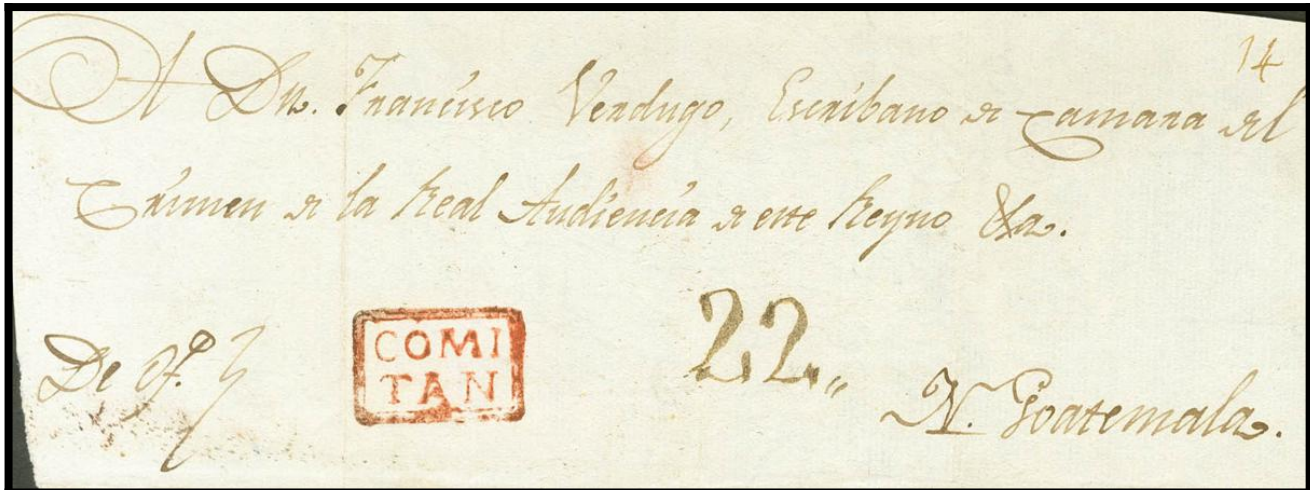 14
A Dn. Francisco Verdugo, Escribano de Camara del
Crimen de la Real Audiencia de este Reyno &a.
De Of.º
COMI
TAN
22
N. Goatemala.